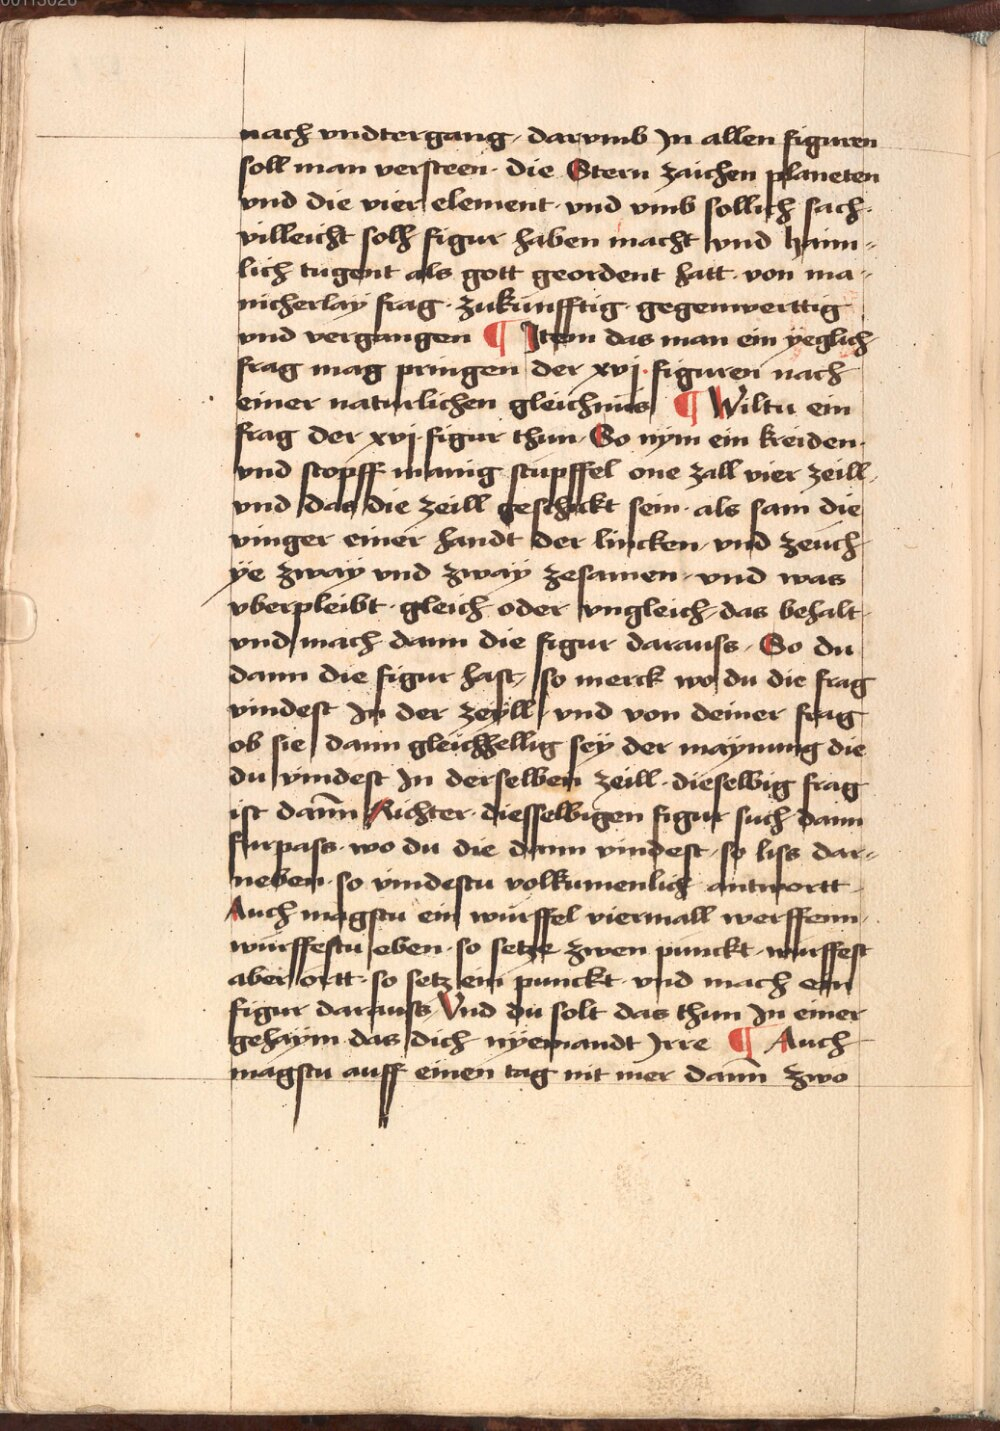 00113028
nach vndtergang, darvmb In allen figuren
soll man versteen · die Stern zaichen planeten
vnd die vier element · vnd vmb sollich sach ·
villeicht solh figur haben macht vnd haim-
lich tugent als gott geordent hatt · von ma-
nicherlay frag · zukünfftig · gegenwerttig
vnd vergangen ¶ Item das man ein yeglich
frag mag pringen der xvj · figuren nach
einer naturlichen gleichnus ¶ Wiltu ein
frag der xvj · figur thun · So nym ein kreiden ·
vnd stopff manig stupffel one zall vier zeill,
vnd das die zeill geschickt sein · als sam die
vinger einer handt der lincken, vnd zeuch
ye zway vnd zway zesamen · vnd was
vberpleibt · gleich oder vngleich, das behalt ·
vnd mach dann die figur darauss, So du
dann die figur hast, so merck wo du die frag
vindest In der zeyll, vnd von deiner frag
ob sie dann gleichhellig sey der maynung die
du vindest In derselben zeill · dieselbig frag
ist dann̄ Richter · diesselbigen figur such dann
furpass · wo du die dann vindest, so liss dar-
neben · so vindestu volkumenlich antwortt ·
Auch magstu ein würffel viermall werffenn,
würffestu eben · so setze zwen punckt · wurffest
aber ortt · so setz ein punckt · vnd mach ein
figur darauss, Vnd du solt das thun In einer
gehaym das dich nyemandt Irre ¶ Auch
magstu auff einen tag nit mer dann̄ zwo